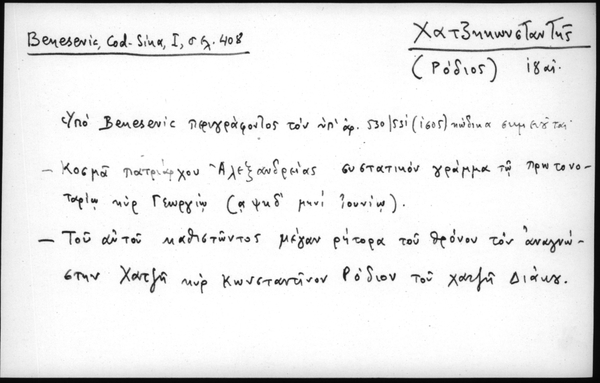 Χατζηκωνσταντῆς
Benesevic, Cod. Sina, I, σελ. 408
(Ρόδιος)
Ὑπὸ Benesevic περιγράφοντος τὸν ὑπ' ἀρ. 530/531 (1605) κώδικα σημειοῦται
— Κοσμᾶ πατριάρχου Ἀλεξανδρείας συστατικόν γράμμα τῷ πρωτονο-
ταρίῳ κὺρ Γεωργίῳ (αψκδ' μηνὶ Ἰουνίῳ).
— Τοῦ αὐτοῦ καθιστῶντος μέγαν ρήτορα τοῦ θρόνου τὸν ἀναγνώ-
στην Χατζῆ κὺρ Κωνσταντῖνον Ρόδιον τοῦ χατζῆ Διάκου.